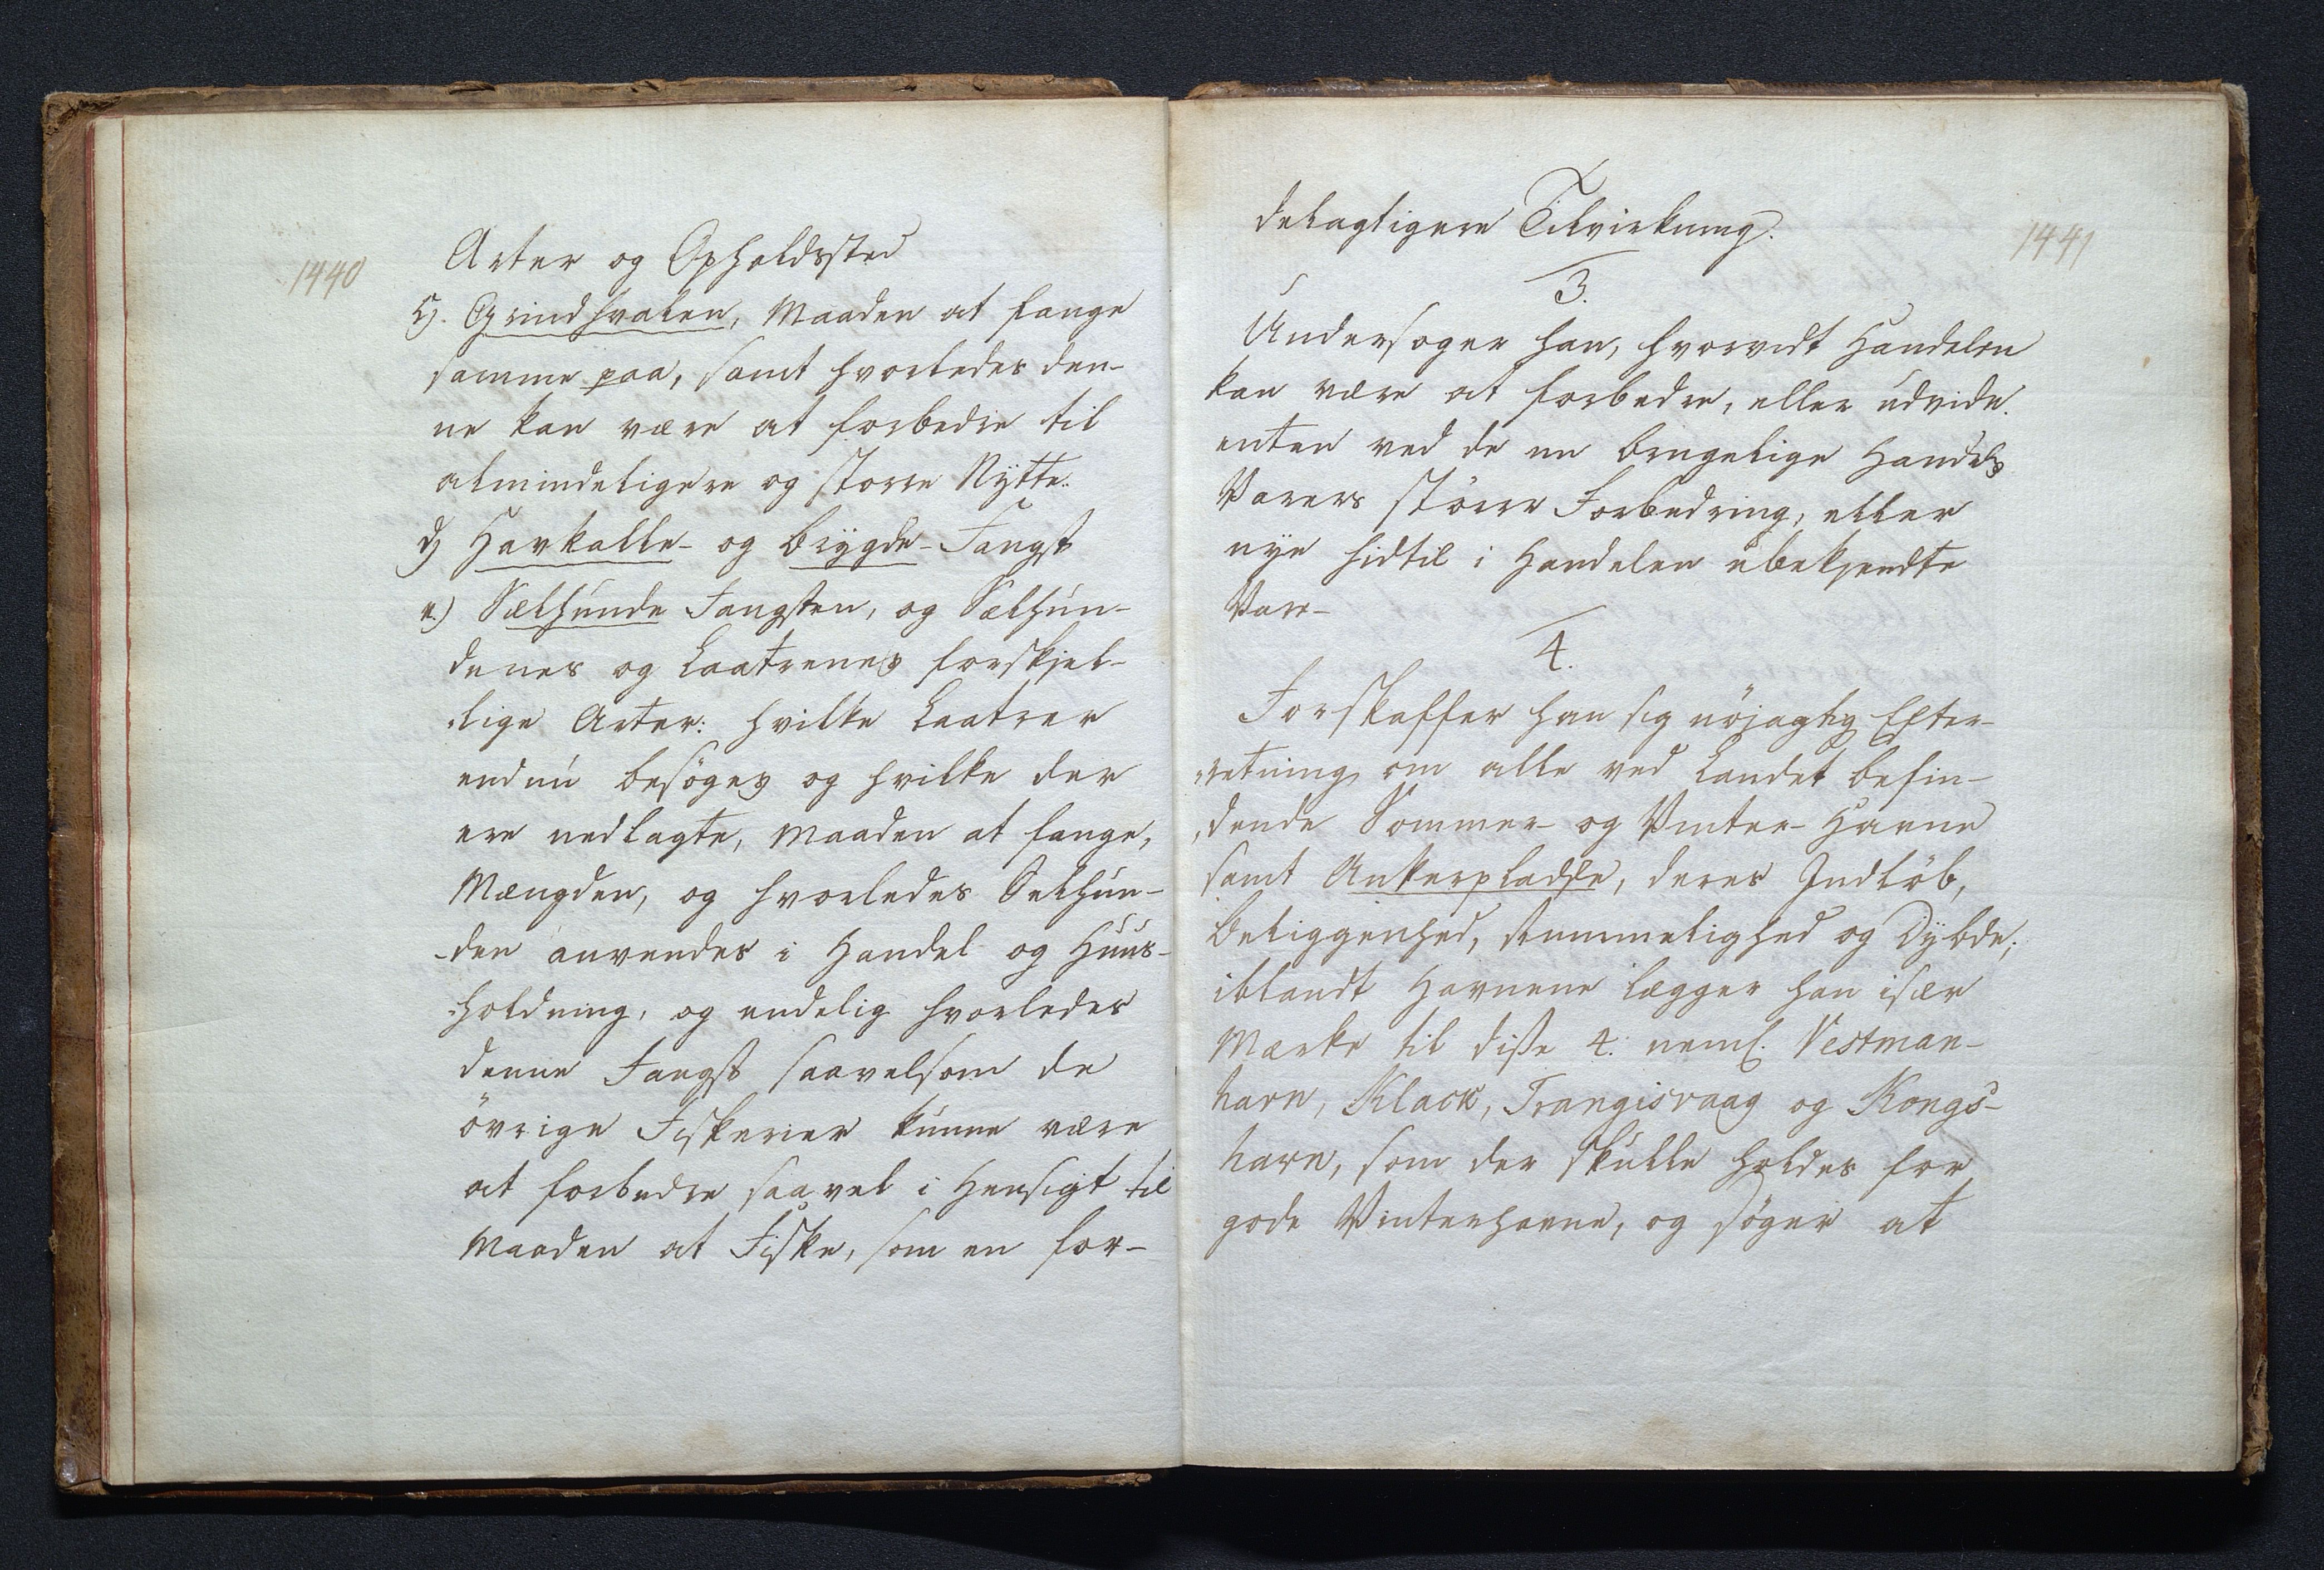 1440
Arter og Opholdssted
c). Grindhvalen, Maaden at fange
samme paa, samt hvorledes den-
ne kan være at forbedre til
almindeligere og storre Nytte.
d) Havkalle- og Brygde-Fangst
e.) Sælhunde Fangsten, og Sælhun-
denes og Laatrenes forskjel-
lige Arter: hvilke Laatrer
endnu besöges og hvilke der
ere nedlagte, Maaden at fange,
Mængden, og hvorledes Selhun-
-den anvendes i Handel og Huus-
-holdning, og endelig hvorledes
denne Fangst saavelsom de
övrige Fiskerier kunne være
at forbedre saavel i Hensigt til
Maaden at Fiske, som en for-
1441
delagtigere Tilvirkning.
3.
Undersoger han, hvorvidt Handelen
kan være at forbedre, eller udvide.
enten ved de nu brugelige Handels
Varers större Forbedring, eller
nye hidtil i Handelen ubekjendte
Vare-
4.
Forskaffer han sig nöjagtig Efter-
-retning om alle ved Landet befin-
-dende Sommer- og Vinter-Havne
samt Ankerpladse, deres Indlöb,
Beliggenhed, Rummelighed og Dybde;
iblandt Havnene lægger han især
Mærke til disse 4. neml. Vestman-
havn, Klack, Trangisvaag og Kongs-
havn, som der skulle holdes for
gode Vinterhavne, og söger at